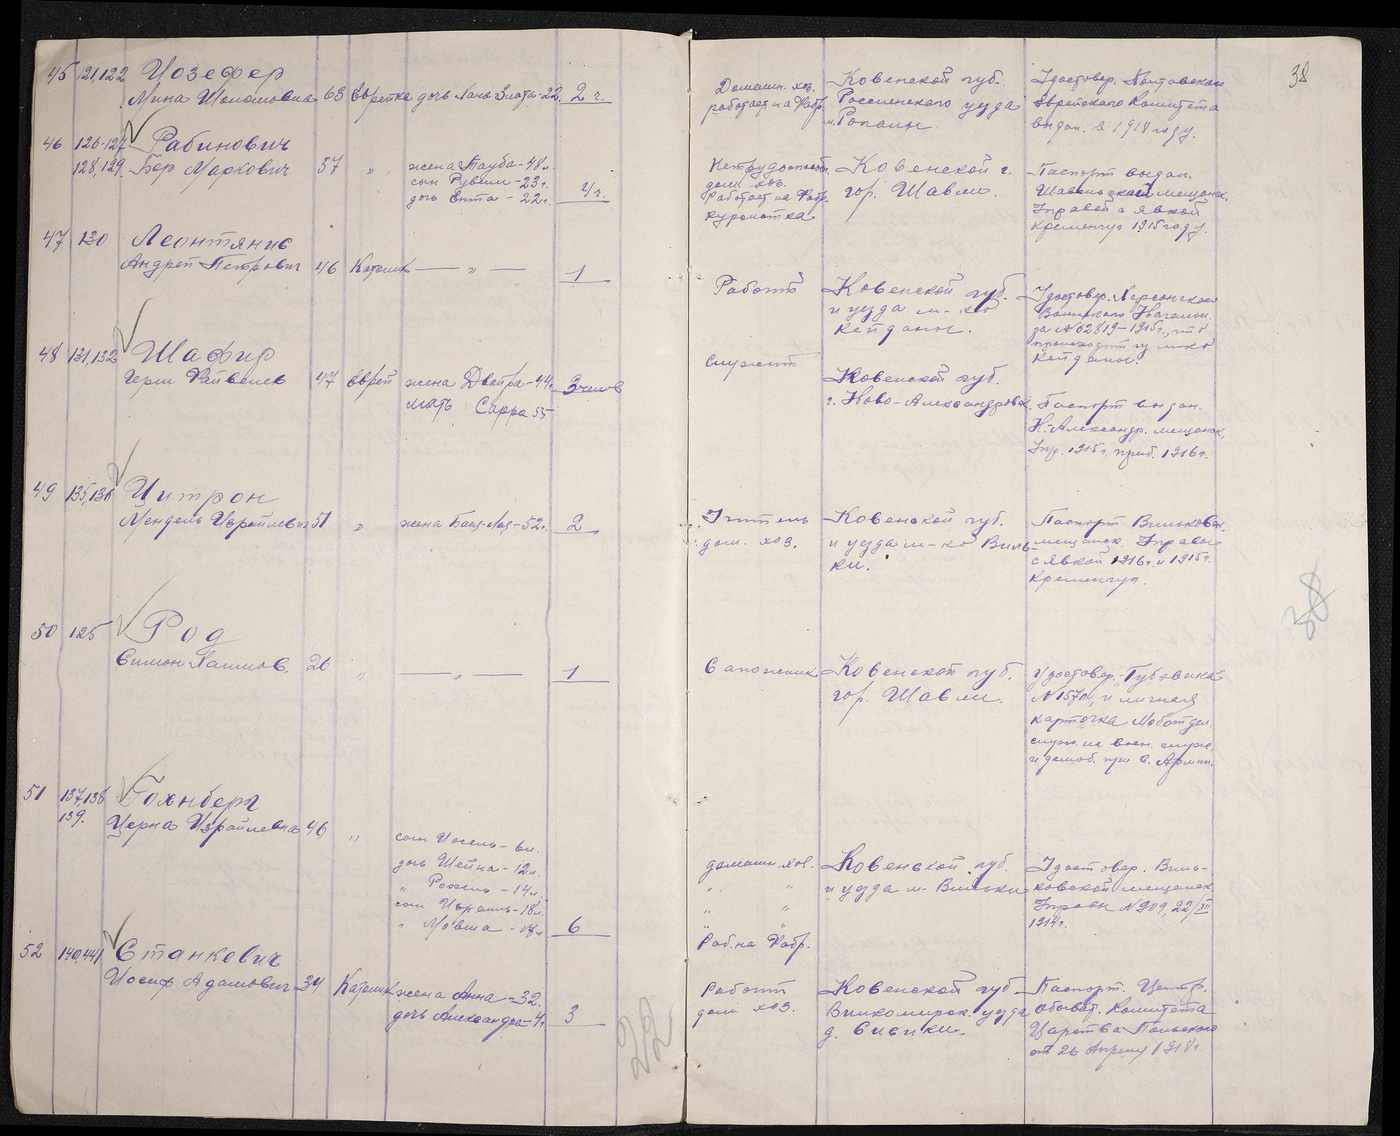 38
45 121,122 Иозефер
Мина Шоломовна 63 Еврейка дочь Хана Злата-22 2 ч.
Домашн. хоз. Ковенской губ. Удостовер. Полтавского
работает на Фабр. Россиенского уезда Еврейского Комитета
м. выдан. в 1918 году.
46 126-127 Рабинович
128,129. Бер Маркович 57 " жена Тауба-48 л.
сын Рувим-23 г.
дочь Ента-22 г. 4 ч.
Нетрудоспособ. Ковенской г. Паспорт выдан.
дом. хоз. гор. Шавли. мещанск.
Работает на Фабр. Управой с явкой
курсистка Кременчуг 1915 году.
47 130 Леонтянис
Андрей Петрович 46 Католик — " — 1
Работ. Ковенской губ. Удостовер. Херсонского
и уезда м-ко Воинского Началн.
Кейданы. за № 02819-1915 г., что
происходит из м-ко
Кейданы.
48 131,132 Шафир
Герш Файвелев 47 Еврей жена Двейра-44 г. 3 челов
мать Сарра 55
Служит Ковенской губ.
г. Ново-Александровск. Паспорт выдан.
Н.-Александр. мещанск.
Упр. 1915 г. приб. 1916 г.
49 135,136 Цитрон
Мендель Израйлевич 51 " жена -52 г. 2
Учитель Ковенской губ. Паспорт Вильковск.
дом. хоз. и уезда м-ко Виль- мещанск. Управы
ки. с явкой 1916 г. и 1915 г.
Кременчуг.
38
50 125 Род
Симон 26 " — " — 1
Сапожник Ковенской губ. Удостовер.
гор. Шавли. и личная
карточка
служ. на воен. служ.
и демоб. при С. Армии.
51 137,138 Гохнберг
139. Церна Израйлевна 46 " сын Иосель-6 л.
дочь Шейна-12 л.
" Рохель-14 л.
сын Израиль-18 л.
" Мовша 6
домашн. хоз. Ковенской губ. Удостовер. Виль-
" " и уезда м- Вильки ковской мещанск.
" " Управы № 909, 22/XII
" " 1914 г.
Раб. на Фабр.
52 140,141 Станкевич
Иосиф Адамович 34 Католик жена Анна-32.
дочь Александра-4 г. 3
Работ. Ковенской губ Паспорт. Центр.
дом хоз. Вилкомирск. уезда Обыват. Комитета
д. Сивики. Царства Польского
от 26 Апреля 1918 г.
22